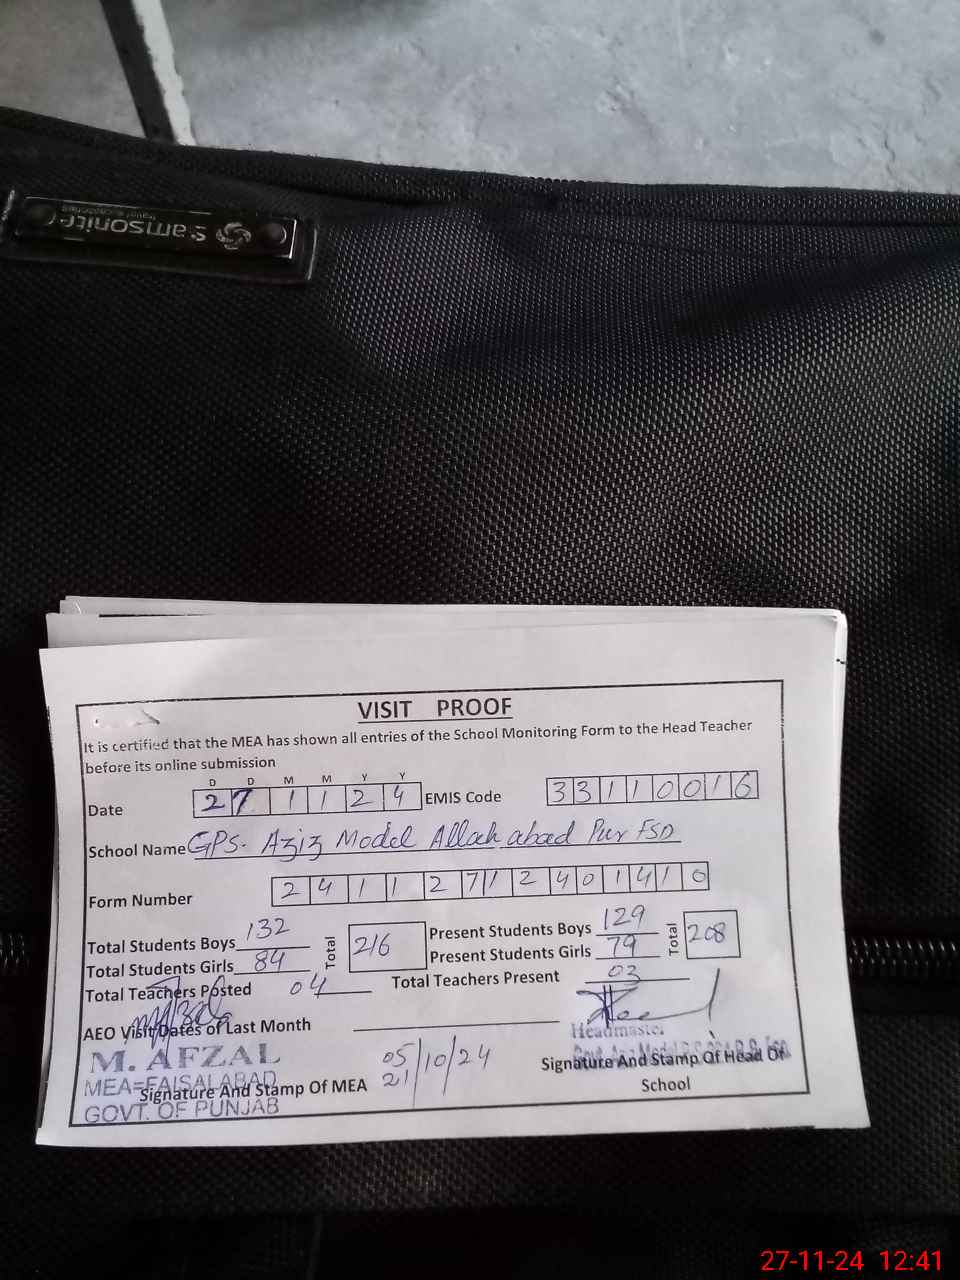 Samsonite
VISIT PROOF
It is certified that the MEA has shown all entries of the School Monitoring Form to the Head Teacher
before its online submission
D D M M Y Y
Date 2 7 1 1 2 4 EMIS Code 3 3 1 1 0 0 1 6
School Name GPS. Aziz Model Allah abad Pur FSD
Form Number 2 4 1 1 2 7 1 2 4 0 1 4 1 0
Total Students Boys 132 Total 216 Present Students Boys 129 Total 208
Total Students Girls 84 Present Students Girls 79
Total Teachers Posted 04 Total Teachers Present 03
AEO Visit Dates of Last Month
Headmaster
M. AFZAL
MEA=FAISALABAD
GOVT. OF PUNJAB
Signature And Stamp Of MEA
05/10/24
21
Signature And Stamp Of Head Of
School
27-11-24 12:41